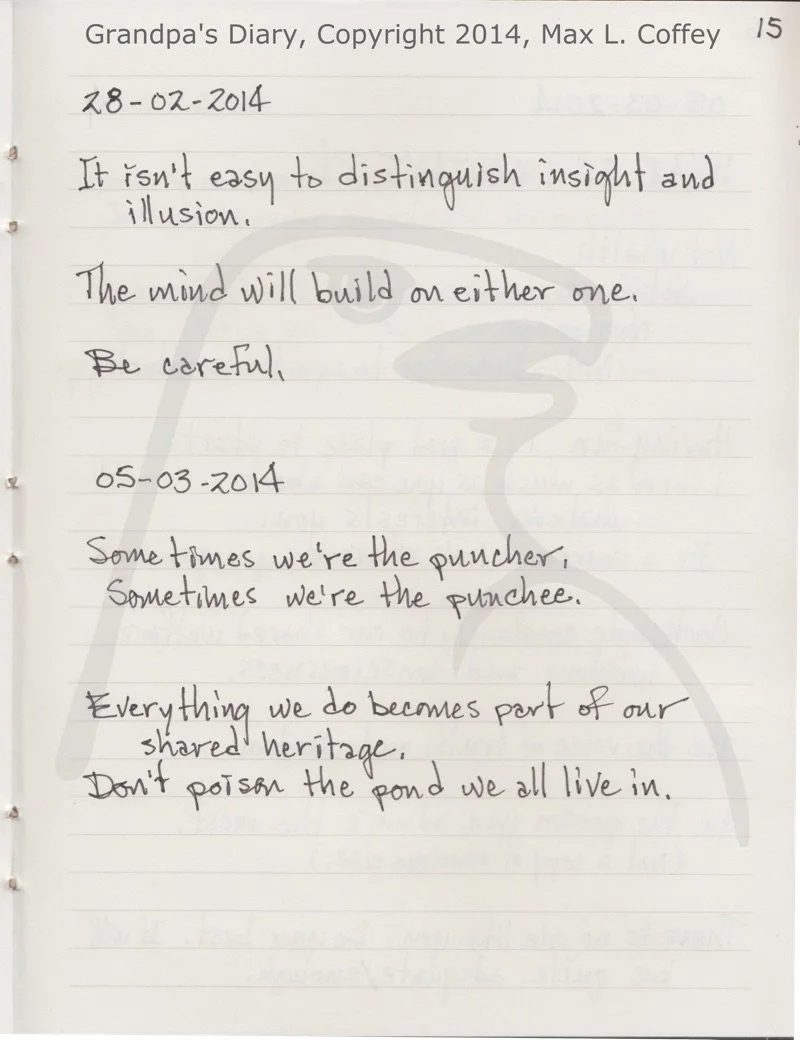 Grandpa's Diary, Copyright 2014, Max L. Coffey 15
28-02-2014
It isn't easy to distinguish insight and
illusion.
The mind will build on either one.
Be careful.
05-03-2014
Sometimes we're the puncher,
Sometimes we're the punchee.
Everything we do becomes part of our
shared heritage.
Don't poison the pond we all live in.